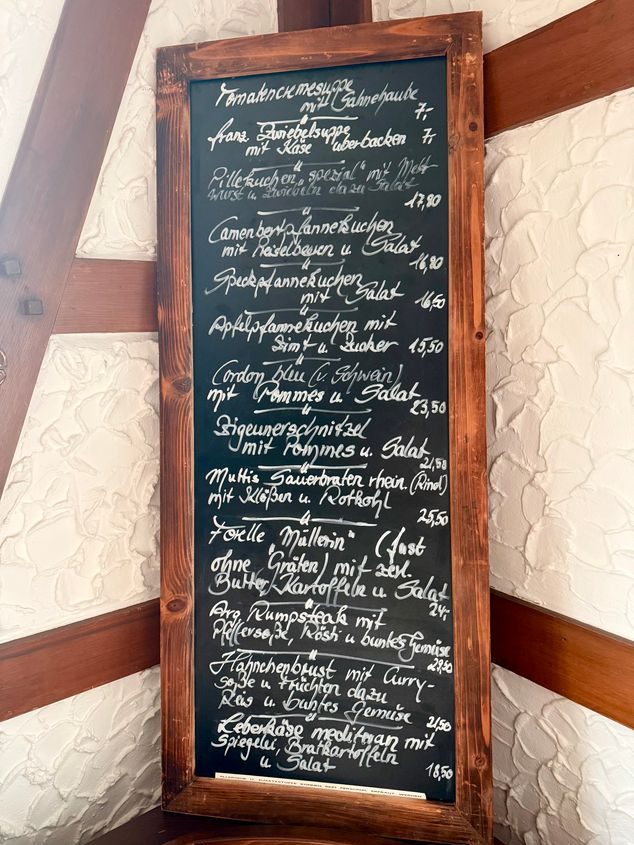 Tomatencremesuppe
mit Sahnehaube 7,-
franz. Zwiebelsuppe
mit Käse überbacken 7,-
Pillekuchen "spezial" mit Mett-
wurst u Zwiebeln dazu Salat
17,80
Camenbertpfannekuchen
mit Preiselbeeren u. Salat
16,80
Speckpfannekuchen
mit Salat 16,50
Apfelpfannekuchen mit
Zimt u. Zucker 15,50
Cordon bleu (v. Schwein)
mit Pommes u. Salat
23,50
Zigeunerschnitzel
mit Pommes u. Salat
21,50
Muttis Sauerbraten rhein. (Rind)
mit Klößen u. Rotkohl
25,50
Forelle "Müllerin" (fast
ohne Gräten) mit zerl.
Butter, Kartoffeln u. Salat
24,-
Arg. Rumpsteak mit
Pfeffersoße, Rösti u buntes Gemüse
29,50
Hähnchenbrust mit Curry-
soße u Früchten dazu
Reis u. buntes Gemüse 21,50
Leberkäse mediteran mit
Spiegelei, Bratkartoffeln
u Salat 18,50